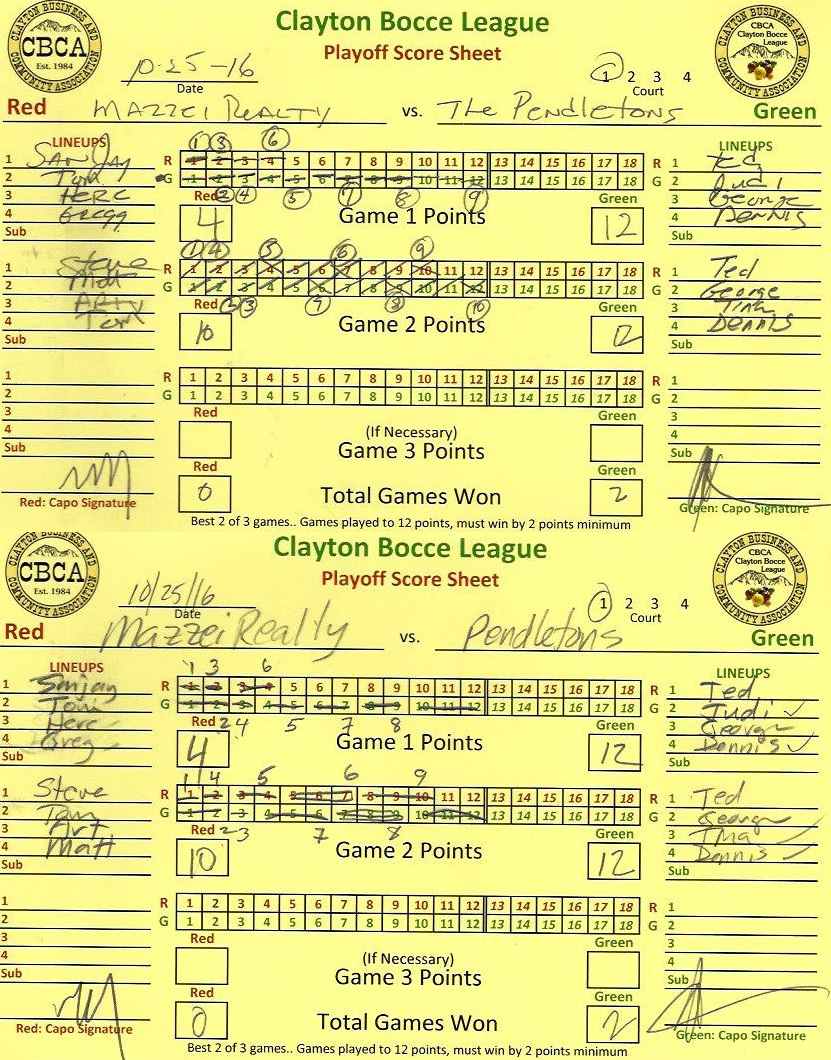 Clayton Bocce League
Playoff Score Sheet
CLAYTON BUSINESS AND COMMUNITY ASSOCIATION
CBCA
Est. 1984
CBCA
Clayton Bocce League
10-25-16
Date
1 2 3 4
Court
Red MAZZEI REALTY vs. THE PENDLETONS Green
LINEUPS
1 SANJAY
2 TOM
3 HERC
4 GREGG
Sub
1 3 6
R 1 2 3 4 5 6 7 8 9 10 11 12 13 14 15 16 17 18
G 1 2 3 4 5 6 7 8 9 10 11 12 13 14 15 16 17 18
Red 2 4 5 7 8 9 Green
4 Game 1 Points 12
LINEUPS
1 Ted
2 Judi
3 George
4 DENNIS
Sub
1 Steve
2 Matt
3 ARTY
4 Tom
Sub
1 4 5 6 9
R 1 2 3 4 5 6 7 8 9 10 11 12 13 14 15 16 17 18
G 1 2 3 4 5 6 7 8 9 10 11 12 13 14 15 16 17 18
Red 2 3 7 8 10 Green
10 Game 2 Points 12
1 Ted
2 George
3 Tina
4 DENNIS
Sub
1
2
3
4
Sub
R 1 2 3 4 5 6 7 8 9 10 11 12 13 14 15 16 17 18 R
G 1 2 3 4 5 6 7 8 9 10 11 12 13 14 15 16 17 18 G
Red Green
(If Necessary)
Game 3 Points
1
2
3
4
Sub
Red Green
0 Total Games Won 2
Red: Capo Signature
Green: Capo Signature
Best 2 of 3 games.. Games played to 12 points, must win by 2 points minimum
Clayton Bocce League
Playoff Score Sheet
CLAYTON BUSINESS AND COMMUNITY ASSOCIATION
CBCA
Est. 1984
CBCA
Clayton Bocce League
10/25/16
Date
1 2 3 4
Court
Red Mazzei Realty vs. Pendletons Green
LINEUPS
1 Sanjay
2 Tom
3 Herc
4 Greg
Sub
1 3 6
R 1 2 3 4 5 6 7 8 9 10 11 12 13 14 15 16 17 18 R
G 1 2 3 4 5 6 7 8 9 10 11 12 13 14 15 16 17 18 G
Red 2 4 5 7 8 Green
4 Game 1 Points 12
LINEUPS
1 Ted
2 Judi ✓
3 George
4 Dennis ✓
Sub
1 Steve
2 Tom
3 Art
4 Matt
Sub
1 4 5 6 9
R 1 2 3 4 5 6 7 8 9 10 11 12 13 14 15 16 17 18 R
G 1 2 3 4 5 6 7 8 9 10 11 12 13 14 15 16 17 18 G
Red 2 3 7 8 Green
10 Game 2 Points 12
1 Ted
2 George
3 Tina ✓
4 Dennis ✓
Sub
1
2
3
4
Sub
R 1 2 3 4 5 6 7 8 9 10 11 12 13 14 15 16 17 18 R
G 1 2 3 4 5 6 7 8 9 10 11 12 13 14 15 16 17 18 G
Red Green
(If Necessary)
Game 3 Points
1
2
3
4
Sub
Red Green
0 Total Games Won 2
Red: Capo Signature
Green: Capo Signature
Best 2 of 3 games.. Games played to 12 points, must win by 2 points minimum